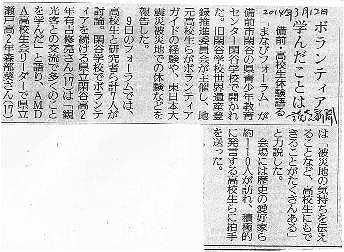 2014年9月12日
読売新聞
ボランティア
学んだことは
備前・高校生体験語る
「まなびフォーラム」が
備前市閑谷の県青少年教育
センター閑谷学校で開かれ
た。旧閑谷学校世界遺産登
録推進委員会が主催し、地
元高校生らがボランティア
ガイドの経験や、東日本大
震災被災地での体験などを
報告した。
9日のフォーラムでは、
高校生と研究者ら計7人が
討論。閑谷学校でボランテ
ィアを続ける県立閑谷高2
年有吉峻亮さん(17)は「観
光客との交流で多くのこと
を学んだ」と語り、AMD
A高校生会リーダーで県立
瀬戸高2年森郁葵さん(17)
は「被災地の気持ちを伝え
ることなど、高校生にもで
きることがたくさんある」
と力説した。
会場には歴史の愛好家ら
約110人が訪れ、積極的
に発言する高校生らに拍手
を送った。